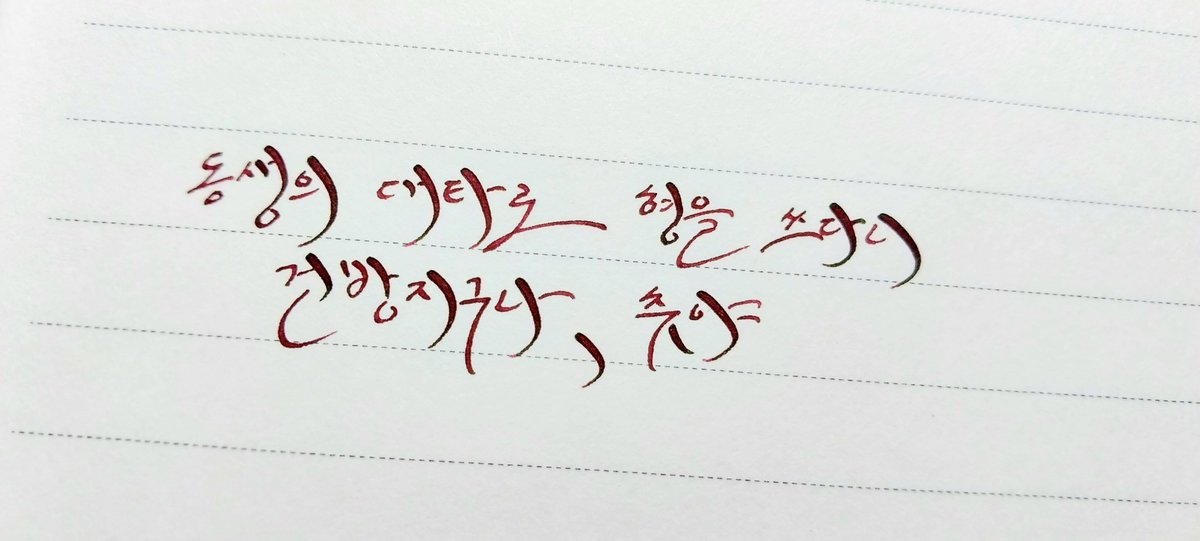 동생의 대타로 형을 쓰다니
건방지구나, 츄야